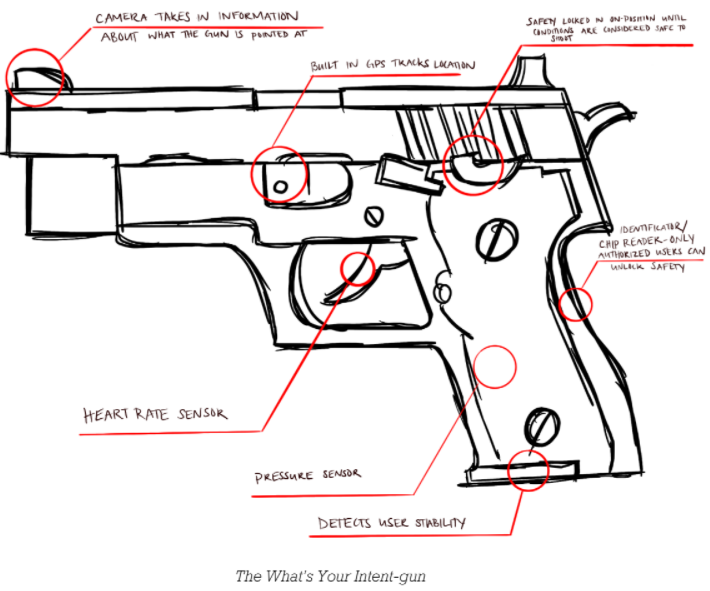 CAMERA TAKES IN INFORMATION
ABOUT WHAT THE GUN IS POINTED AT
SAFETY LOCKED IN ON-POSITION UNTIL
CONDITIONS ARE CONSIDERED SAFE TO
SHOOT
BUILT IN GPS TRACKS LOCATION
IDENTIFICATOR/
CHIP READER-ONLY
AUTHORIZED USERS CAN
UNLOCK SAFETY
HEART RATE SENSOR
PRESSURE SENSOR
DETECTS USER STABILITY
The What's Your Intent-gun